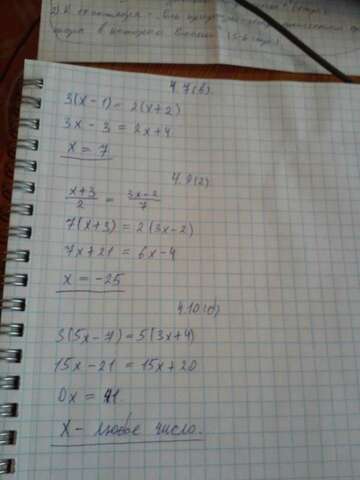 4.7(в).
3(x-1) = 2(x+2)
3x - 3 = 2x+4
x = 7
4.9(2)
x+3/2 = 3x-2/7
7(x+3) = 2(3x-2)
7x+21 = 6x-4
x = -25
4.10(б)
3(5x-7) = 5(3x+4)
15x - 21 = 15x+20
0x = 41
x - любое число.